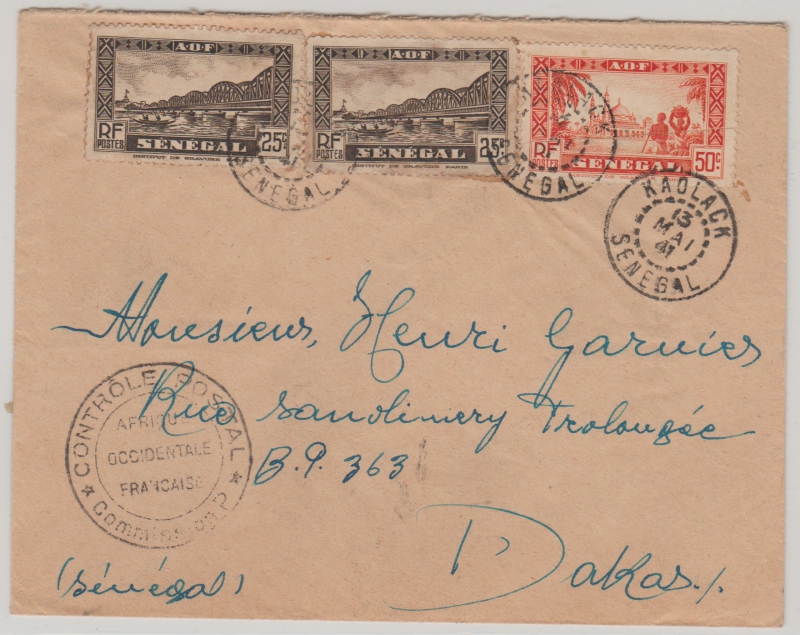 A·O·F
RF
POSTES
25c
SENEGAL
INSTITUT DE GRAVURE
A·O·F
RF
POSTES
25c
SENEGAL
INSTITUT DE GRAVURE PARIS
A·O·F
RF
POSTES
50c
SENEGAL
SENEGAL
SENEGAL
KAOLACK
13
MAI
41
SENEGAL
Monsieur Henri Garnier
Rue Sandinery Prolongée
B.P. 363
Dakar./.
(Sénégal)
CONTRÔLE POSTAL
AFRIQUE
OCCIDENTALE
FRANCAISE
Commission D